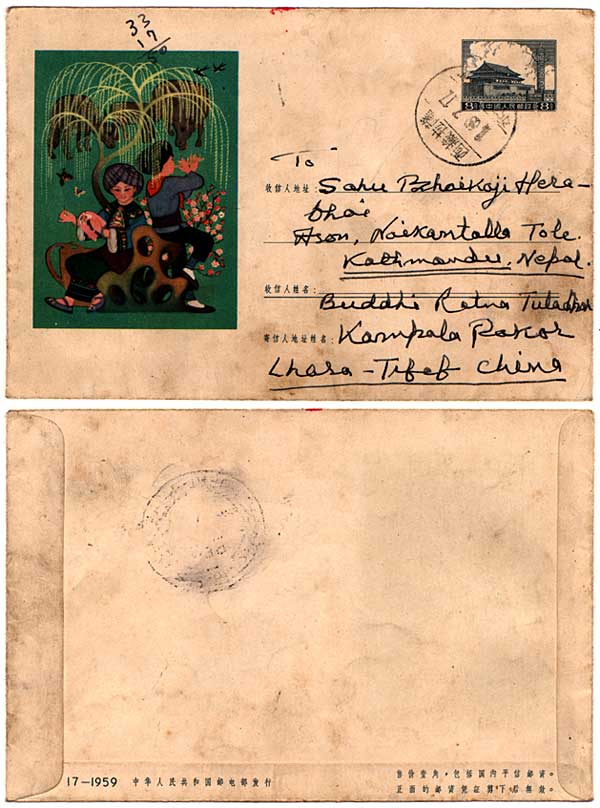 33
17
50
8 中國人民郵政 8
西藏拉薩
To
收信人地址: Sahu Bhaikaji Hera-
bhai
Ason, Naikantalla Tole.
Kathmandu, Nepal.
收信人姓名:
Buddhi Ratna Tuladhar
寄信人地址姓名: Kampala Pokor
Lhasa - Tibet China
17-1959 中华人民共和国邮电部发行
售价壹角,包括国内平信邮资。
正面的邮资凭证剪下后无效。